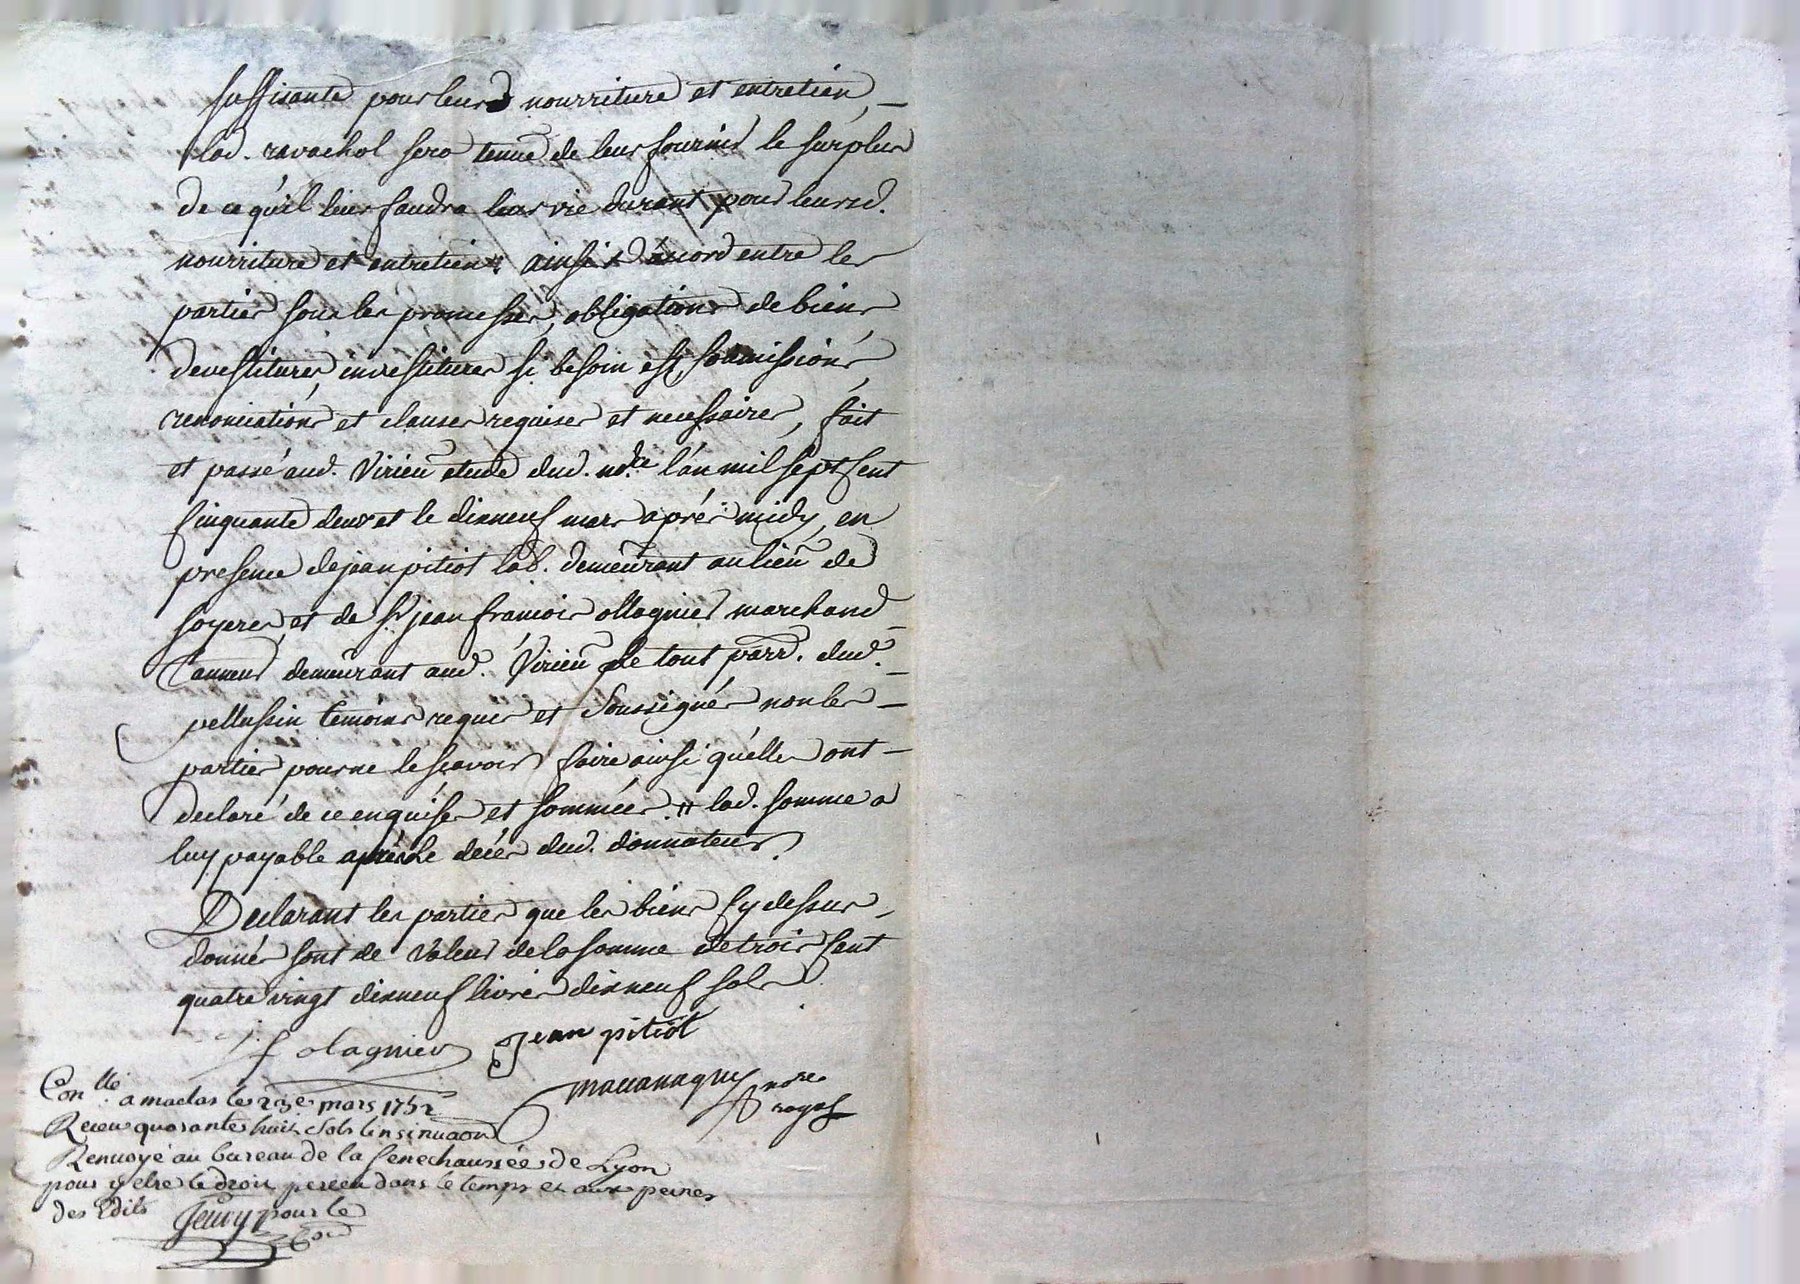 suffisante pour leurd nourriture et entretien, –
lad. ravachol sera tenue de leur fournir le surplus
de ce qu'il leur faudra leur vie durant pour leursd.
nourriture et entretien ainsi d'acord entre les
parties sous les promesses, obligations de biens
devestitures, investitures si besoin est, soumissions,
renonciations et clauses requises et necessaires, fait
et passé aud. Virieu etude dud. nore l'an mil sept cent
cinquante deux et le dixneuf mars après midy, en
presence de jean pitiot lab. demeurant au lieu de
soyeres, et de sr jean francois ollagnier marchand
tanneur demeurant aud. Virieu de tout parr. dud. –
pellussin temoins requis et soussignés non les –
parties pour ne le scavoir faire ainsi qu'elles ont –
declaré de ce enquises et sommées. # lad. somme a
luy payable après le décès dud. donnateur.
Declarant les parties que les biens cy dessus
donnés sont de valeur de la somme de trois cent
quatre vingt dixneuf livres dixneuf sols
f olagnier Jean pitiot
Con.llé a maclas le 23e mars 1752
nore
Receu quarante huit sols linsinuaon
royal
Renvoyé au bureau de la senechaussée de Lyon
pour y etre le droit perceu dans le temps et aux peines
des Edits
pour le